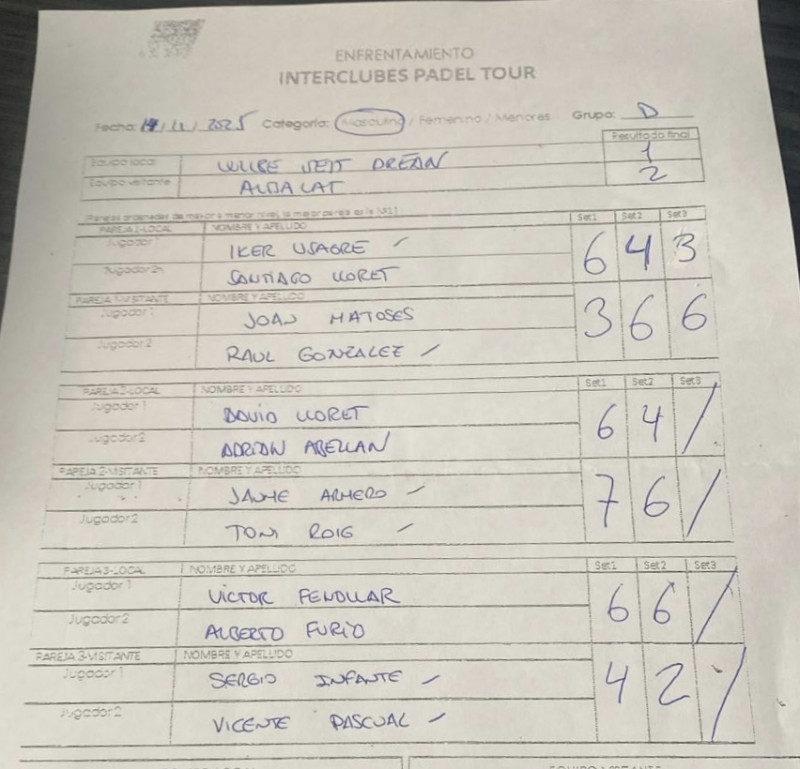 ENFRENTAMIENTO
INTERCLUBES PADEL TOUR
Fecha: 14/11/2025 Categoría: Masculino / Femenino / Menores Grupo: D
Resultado final
Equipo local 1
Equipo visitante ALBALAT 2
(Parejas ordenadas de mayor a menor nivel, la mejor pareja es la Nº1)
PAREJA 1-LOCAL NOMBRE Y APELLIDO Set1 Set2 Set3
Jugador 1 IKER USAGRE
Jugador 2 SANTIAGO LLORET 6 4 3
PAREJA 1-VISITANTE NOMBRE Y APELLIDO
Jugador 1 JOAN MATOSES
Jugador 2 RAUL GONZALEZ 3 6 6
PAREJA 2-LOCAL NOMBRE Y APELLIDO Set1 Set2 Set3
Jugador 1 DAVID LLORET
Jugador 2 ADRIAN ABELLAN 6 4 /
PAREJA 2-VISITANTE NOMBRE Y APELLIDO
Jugador 1 JAUME ARMERO
Jugador 2 TONI ROIG 7 6 /
PAREJA 3-LOCAL NOMBRE Y APELLIDO Set1 Set2 Set3
Jugador 1 VICTOR FENOLLAR
Jugador 2 ALBERTO FURIO 6 6 /
PAREJA 3-VISITANTE NOMBRE Y APELLIDO
Jugador 1 SERGIO INFANTE
Jugador 2 VICENTE PASCUAL 4 2 /